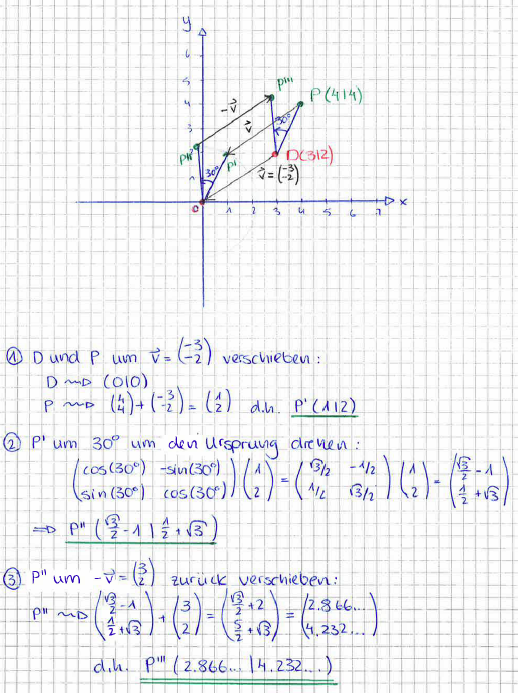 y
6
5
4
3
1
P'''
P(4|4)
-v⃗
v⃗
30°
P''
P'
D(3|2)
30°
v⃗ = (-3 -2)
0
1 2 3 4 5 6 7 x
① D und P um v⃗ = (-3 -2) verschieben:
D ⇝ (0|0)
P ⇝ (4 4) + (-3 -2) = (1 2) d.h. P'(1|2)
② P' um 30° um den Ursprung drehen:
(cos(30°) -sin(30°) (1 = (√3/2 -1/2 (1 = (√3/2 - 1
sin(30°) cos(30°)) 2) 1/2 √3/2) 2) 1/2 + √3)
⇒ P''(√3/2 - 1 | 1/2 + √3)
③ P'' um -v⃗ = (3 2) zurück verschieben:
P'' ⇝ (√3/2 - 1 + (3 = (√3/2 + 2 = (2.866...
1/2 + √3) 2) 5/2 + √3) 4.232...)
d.h. P'''(2.866... | 4.232...)